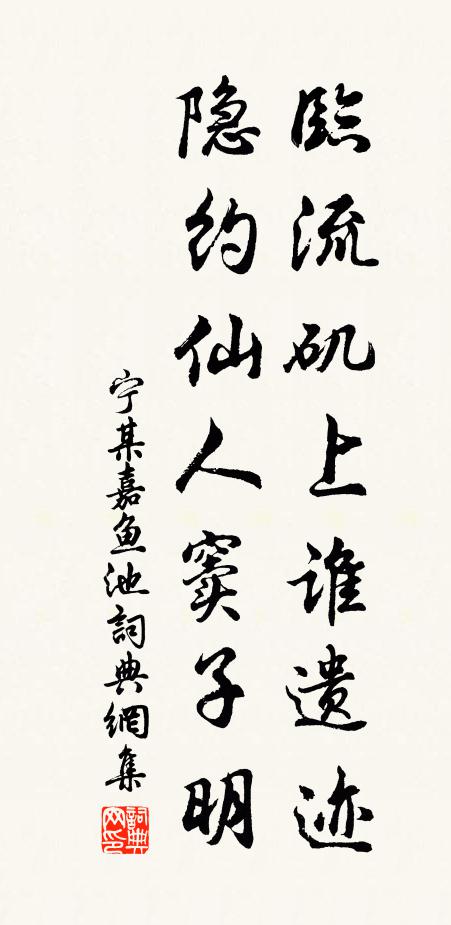 臨流矶上谁遗迹
隐约仙人窦子明
宁某嘉鱼池詞典網集
詞典网印